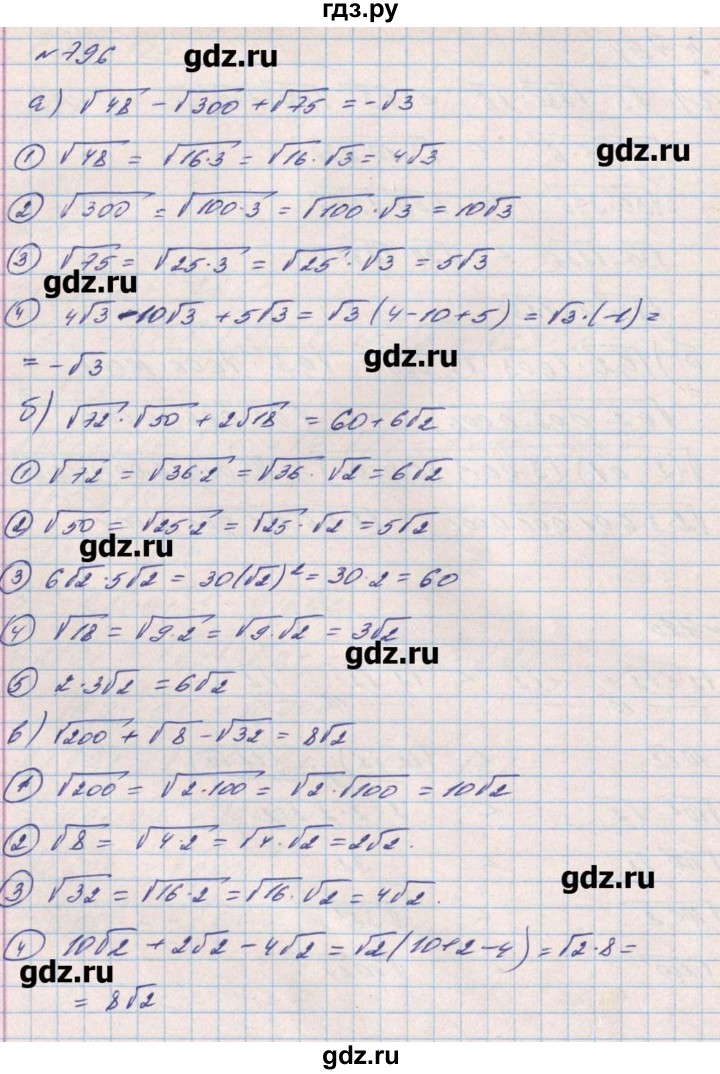 гдз.ру
№796
gdz.ru
а) √48 - √300 + √75 = -√3
① √48 = √16·3 = √16 · √3 = 4√3
gdz.ru
② √300 = √100·3 = √100 · √3 = 10√3
③ √75 = √25·3 = √25 · √3 = 5√3
gdz.ru
④ 4√3 - 10√3 + 5√3 = √3 (4-10+5) = √3·(-1) =
gdz.ru
= -√3
б) √72 · √50 + 2√18 = 60+6√2
① √72 = √36·2 = √36 · √2 = 6√2
② √50 = √25·2 = √25 · √2 = 5√2
gdz.ru
③ 6√2 · 5√2 = 30(√2)² = 30·2 = 60
④ √18 = √9·2 = √9·√2 = 3√2
gdz.ru
⑤ 2·3√2 = 6√2
в) √200 + √8 - √32 = 8√2
① √200 = √2·100 = √2·√100 = 10√2
② √8 = √4·2 = √4·√2 = 2√2.
gdz.ru
③ √32 = √16·2 = √16·√2 = 4√2.
④ 10√2 + 2√2 - 4√2 = √2(10+2-4) = √2·8 =
gdz.ru
= 8√2
gdz.ru